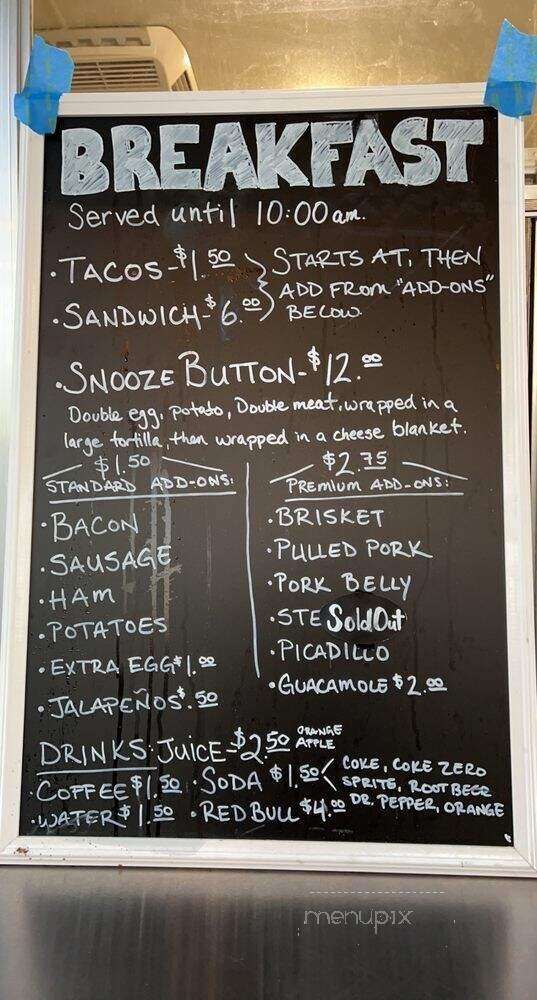 BREAKFAST
Served until 10:00am.
• TACOS-$1.50
• SANDWICH-$6.00
STARTS AT, THEN
ADD FROM "ADD-ONS"
BELOW.
• SNOOZE BUTTON-$12.00
Double egg, potato, Double meat, wrapped in a
large tortilla, then wrapped in a cheese blanket.
$1.50
STANDARD ADD-ONS:
• BACON
• SAUSAGE
• HAM
• POTATOES
• EXTRA EGG $1.00
• JALAPEÑOS $.50
$2.75
PREMIUM ADD-ONS:
• BRISKET
• PULLED PORK
• PORK BELLY
• STE Sold Out
• PICADILLO
• GUACAMOLE $2.00
DRINKS • JUICE-$2.50 ORANGE APPLE
• COFFEE $1.50 • SODA $1.50
• WATER $1.50 • RED BULL $4.00
COKE, COKE ZERO
SPRITE, ROOT BEER
DR. PEPPER, ORANGE
menupix